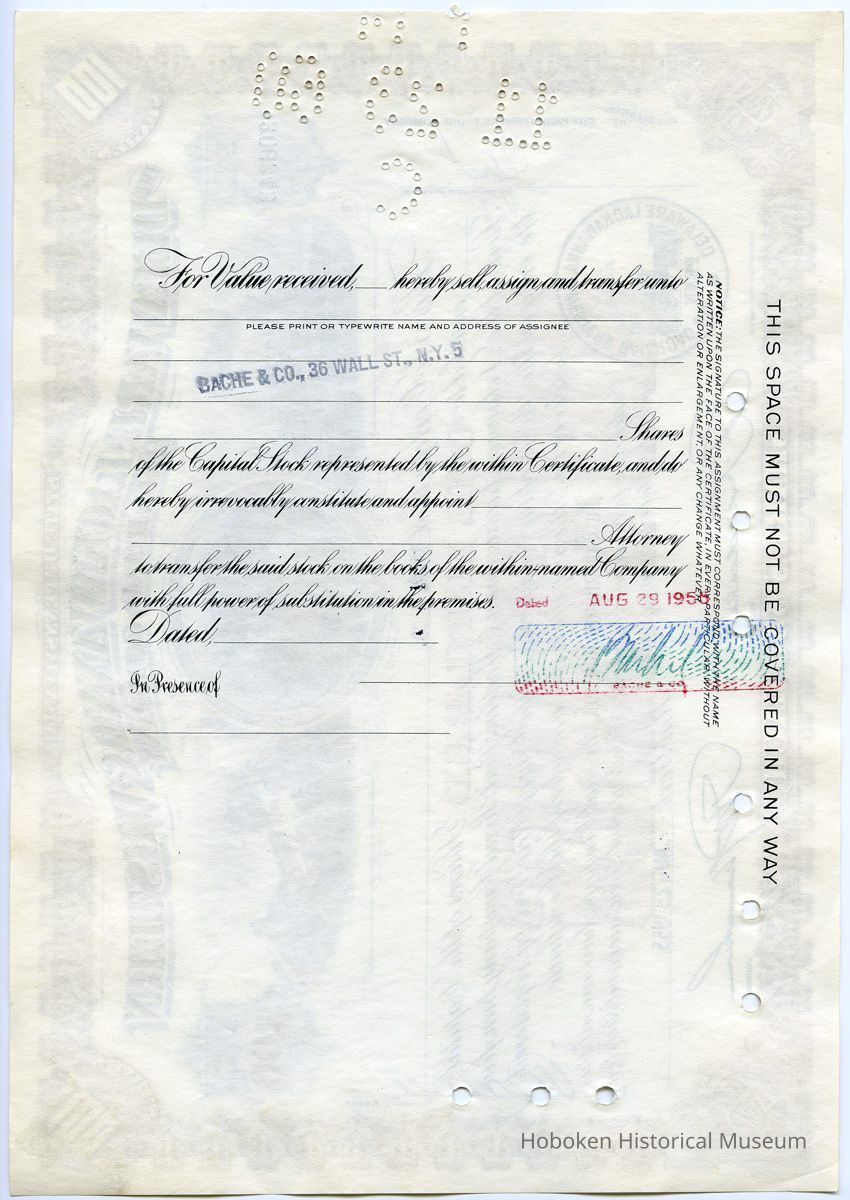 For Value received, hereby sell, assign and transfer unto
PLEASE PRINT OR TYPEWRITE NAME AND ADDRESS OF ASSIGNEE
BACHE & CO., 36 WALL ST., N.Y. 5
Shares
of the Capital Stock represented by the within Certificate, and do
hereby irrevocably constitute and appoint
Attorney
to transfer the said stock on the books of the within-named Company
with full power of substitution in the premises.
Dated AUG 29 195
Dated,
BACHE & CO
In Presence of
NOTICE: THE SIGNATURE TO THIS ASSIGNMENT MUST CORRESPOND WITH THE NAME
AS WRITTEN UPON THE FACE OF THE CERTIFICATE, IN EVERY PARTICULAR, WITHOUT
ALTERATION OR ENLARGEMENT, OR ANY CHANGE WHATEVER.
THIS SPACE MUST NOT BE COVERED IN ANY WAY
Hoboken Historical Museum